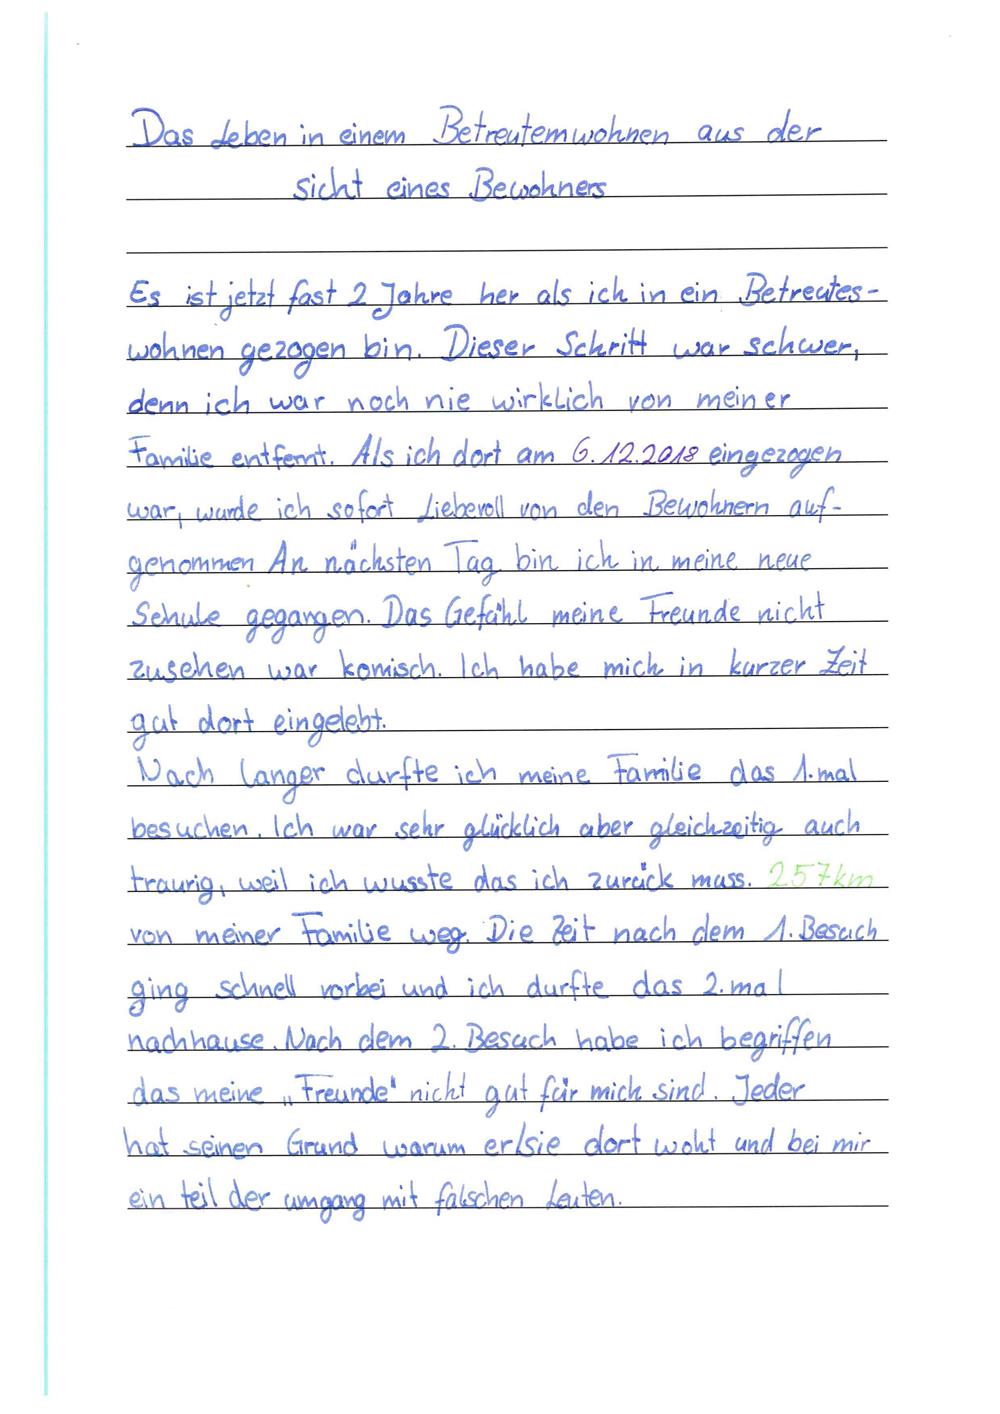 Das Leben in einem Betreutemwohnen aus der
sicht eines Bewohners
Es ist jetzt fast 2 Jahre her als ich in ein Betreutes-
wohnen gezogen bin. Dieser Schritt war schwer,
denn ich war noch nie wirklich von meiner
Familie entfernt. Als ich dort am 6.12.2018 eingezogen
war, wurde ich sofort Liebevoll von den Bewohnern auf-
genommen An nächsten Tag bin ich in meine neue
Schule gegangen. Das Gefühl meine Freunde nicht
zusehen war komisch. Ich habe mich in kurzer Zeit
gut dort eingelebt.
Nach langer durfte ich meine Familie das 1.mal
besuchen. Ich war sehr glücklich aber gleichzeitig auch
traurig, weil ich wusste das ich zurück muss. 257km
von meiner Familie weg. Die Zeit nach dem 1. Besuch
ging schnell vorbei und ich durfte das 2.mal
nachhause. Nach dem 2. Besuch habe ich begriffen
das meine „Freunde" nicht gut für mich sind. Jeder
hat seinen Grund warum er/sie dort woht und bei mir
ein teil der umgang mit falschen Leuten.